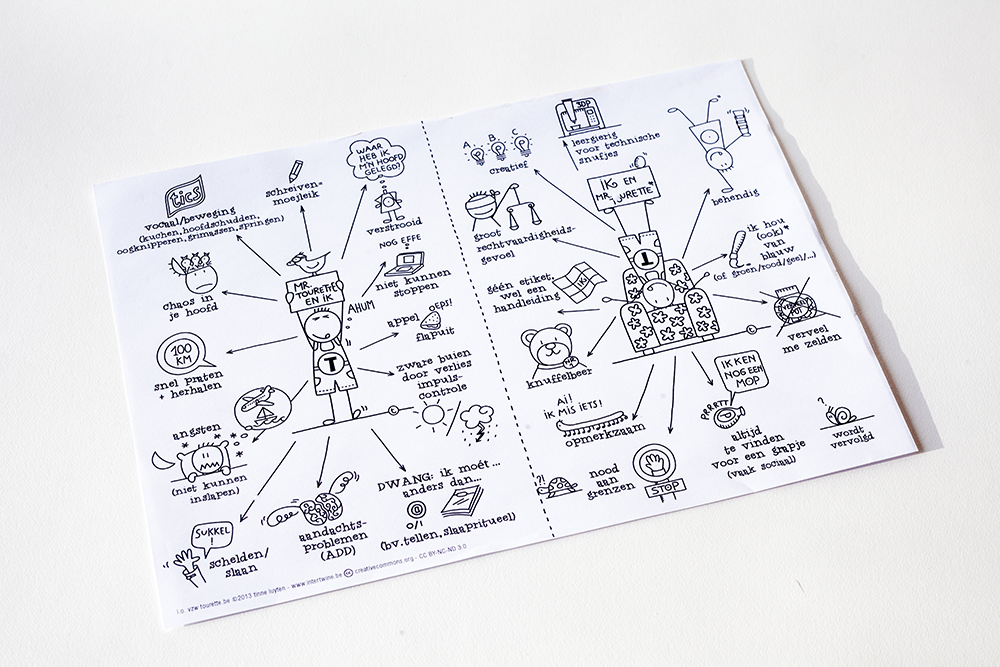 tics
vocaal/beweging
(kuchen, hoofdschudden,
oogknipperen, grimassen, springen)
schreiven-
moejleik
WAAR
HEB IK
M'N HOOFD
GELEGD?
verstrooid
NOG EFFE
niet kunnen
stoppen
chaos in
je hoofd
MR.
TOURETTE
EN IK
AHUM
appel
flapuit
OEPS!
100
KM
snel praten
+ herhalen
T
zware buien
door verlies
impuls-
controle
angsten
(niet kunnen
inslapen)
SUKKEL
!
schelden/
slaan
aandachts-
problemen
(ADD)
DWANG: ik moét...
anders dan...
0/1
(bv. tellen, slaapritueel)
i.o. vzw tourette.be ©2013 tinne luyten - www.intertwine.be creativecommons.org - CC BY-NC-ND 3.0
A B C
creatief
3DP
leergierig
voor technische
snufjes
IK EN
MR. TOURETTE
behendig
groot
rechtvaardigheids-
gevoel
T
ik hou
(ook)*
van
blauw
(of groen/rood/geel/...)
géén etiket,
wel een
handleiding
IK
verveel
me zelden
knuffelbeer
AI!
IK MIS IETS!
opmerkzaam
IK KEN
NOG EEN
MOP
PRRRTT
altijd
te vinden
voor een grapje
(vaak sociaal)
?
wordt
vervolgd
?!
nood
aan
grenzen
STOP